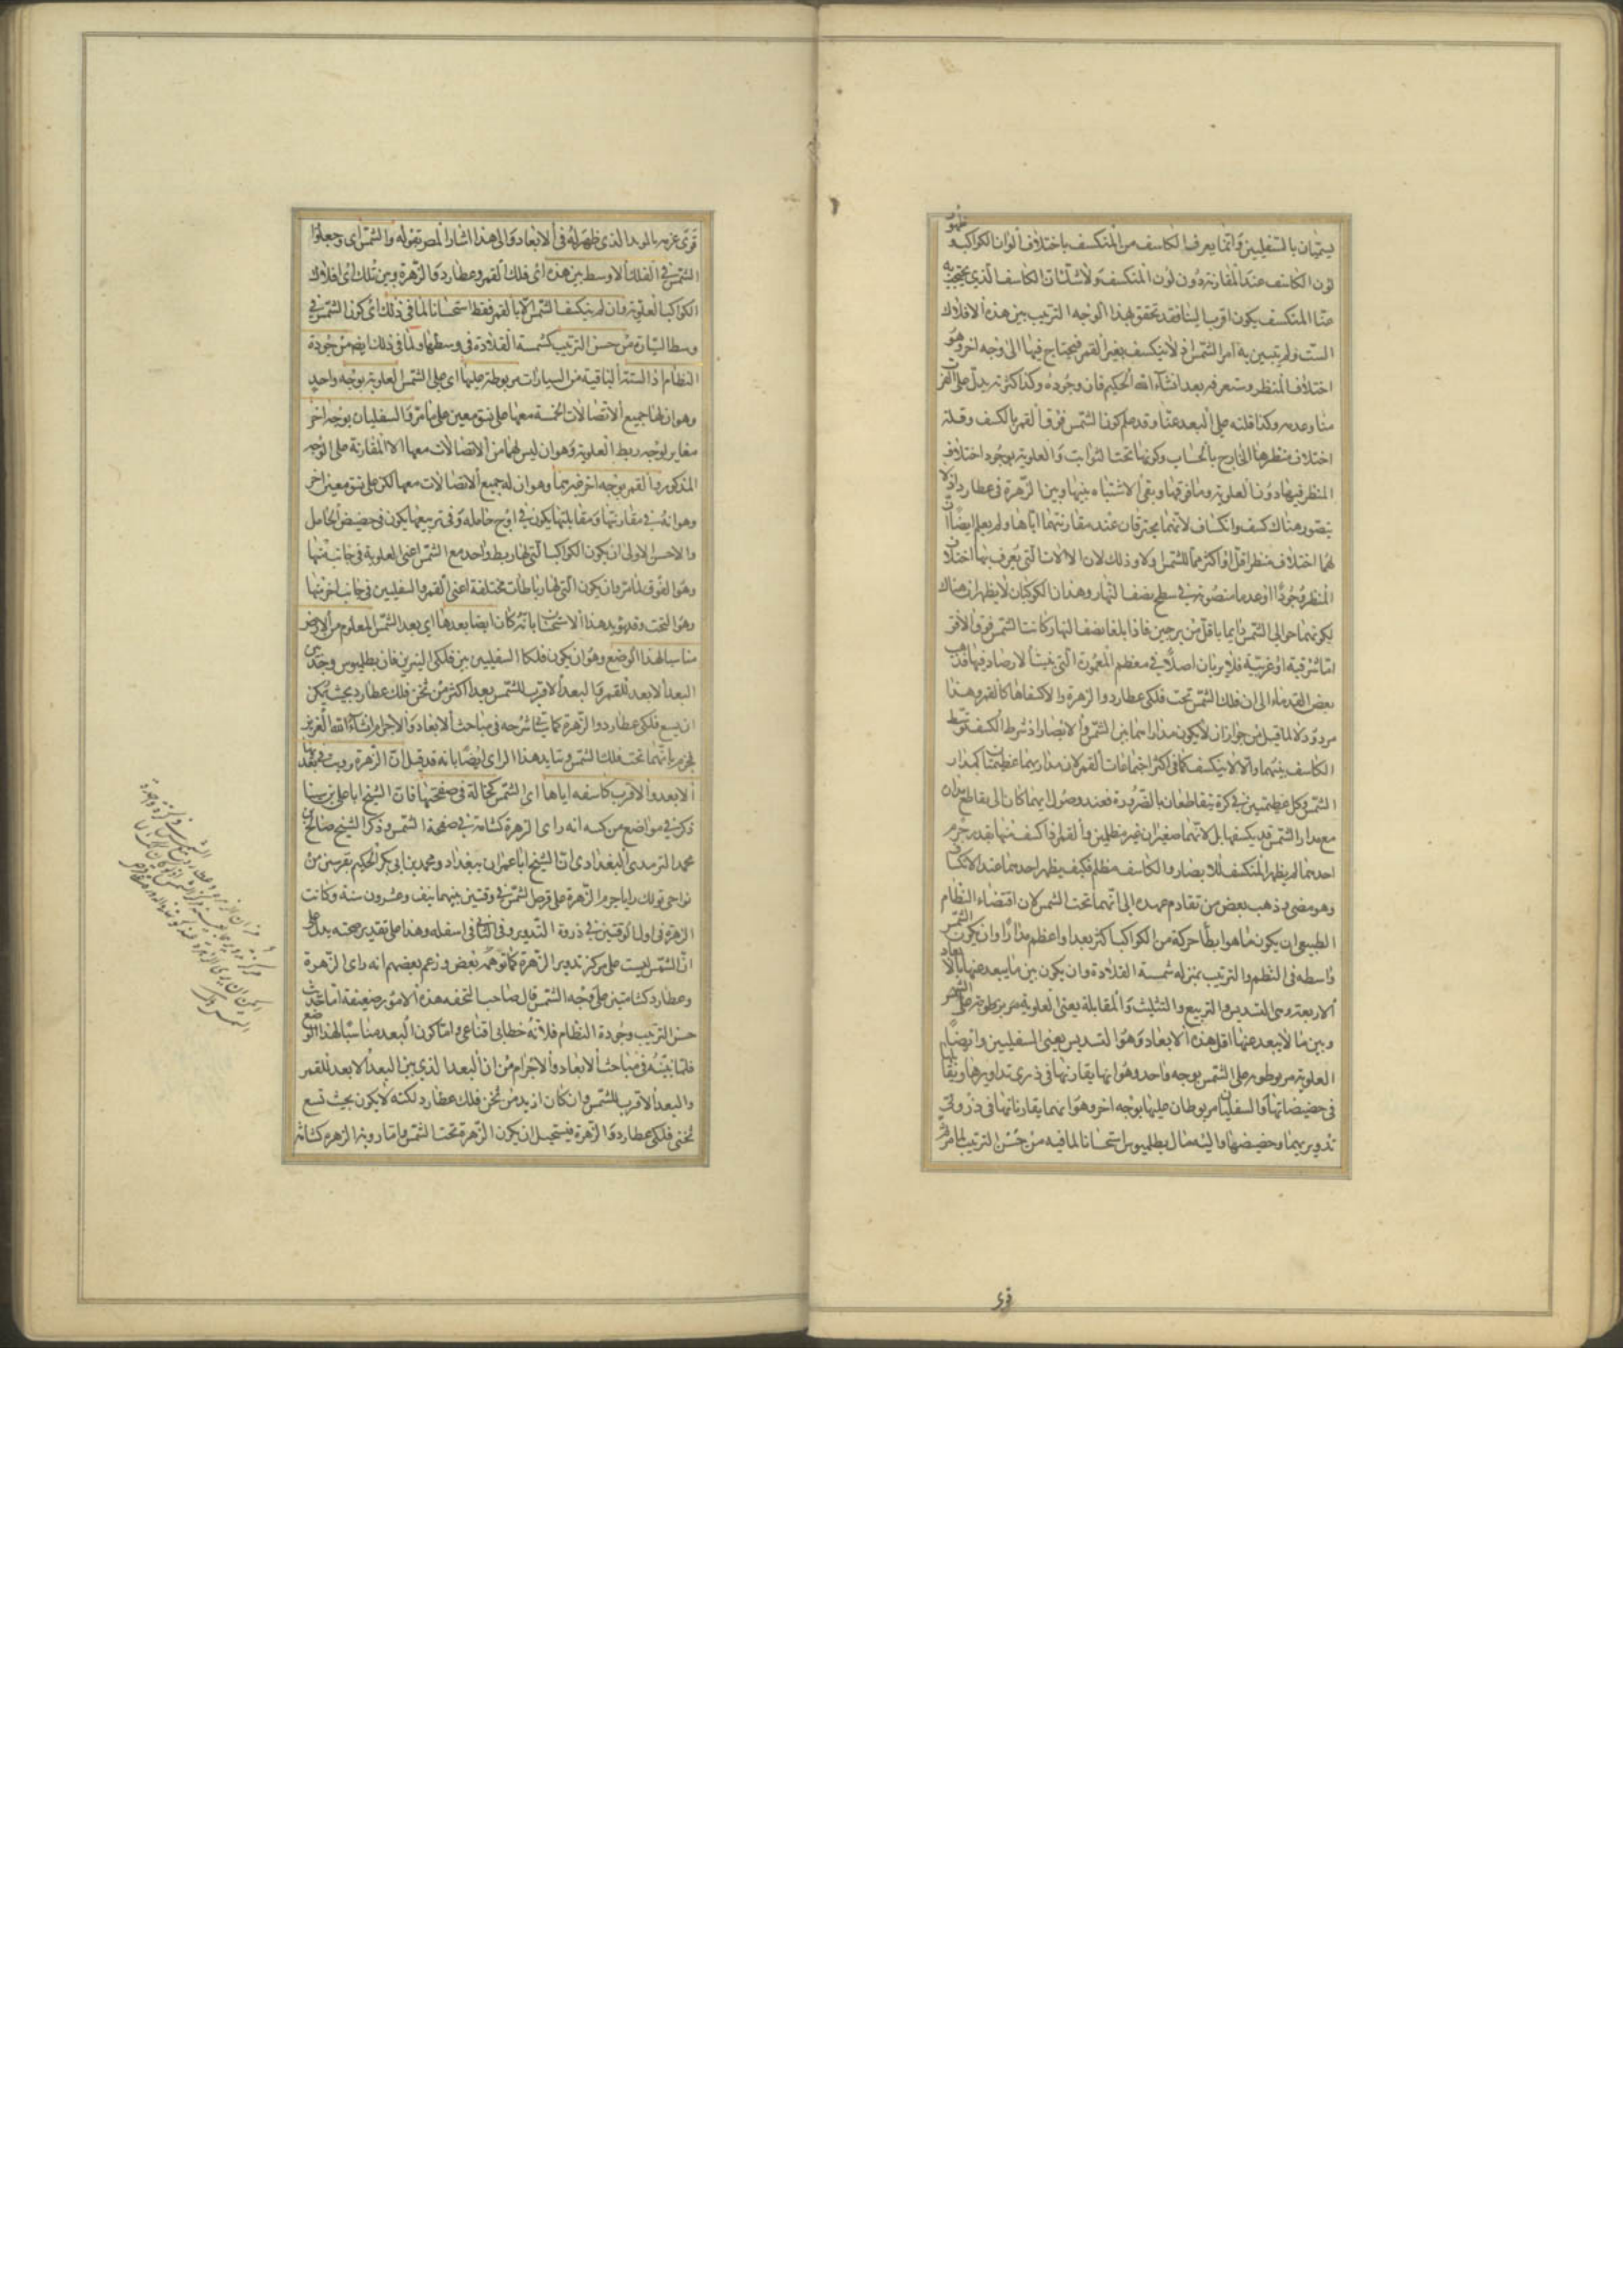 يسميان بالسفليين وانما يعرف الكاسف من المنكسف باختلاف الوان الكواكب وظهور
لون الكاسف عند المقارنة دون لون المنكسف ولا شك ان الكاسف الذي يحتجب به
عنا المنكسف يكون اقرب الينا فقد تحقق بهذا الوجه الترتيب بين هذه الافلاك
الست ولم يتبين به امر الشمس اذ لا ينكسف بغير القمر فيحتاج فيها الى وجه اخر وهو
اختلاف المنظر وستعرفه بعد انشاء الله الحكيم فان وجوده وكذا كثرته يدل على القرب
منا وعدمه وكذا قلته على البعد عنا وقد علم كون الشمس فوق القمر بالكسف وقلة
اختلاف منظرها الخارج بالحساب وكونها تحت الثوابت والعلوية بوجود اختلاف
المنظر فيها دون العلوية وما فوقها وبقى الاشتباه بينها وبين الزهرة وعطارد اذ لا
يتصور هناك كسف وانكساف لانهما يحترقان عند مقارنتهما اياها ولم يعلم ايضا ان
لهما اختلاف منظر اقل او اكثر مما للشمس ولا وذلك لان الالات التي يعرف بها اختلاف
المنظر وجودا او عدما منصوبة في سطح نصف النهار وهذان الكوكبان لا يظهران هناك
لكونهما حوالى الشمس دايما باقل من برجين فاذا بلغا نصف النهار كانت الشمس فوق الافق
اما شرقية او غربية فلا يريان اصلا في معظم المعمورة التي يتيسر الارصاد فيها فذهب
بعض القدماء الى ان فلك الشمس تحت فلكى عطارد والزهرة والا كسفاها كالقمر وهذا
مردود لا لما قيل من جواز ان لا يكون مدارا هما بين الشمس والابصار اذ شرط الكسف توسط
الكاسف بينهما والا لا ينكسف كما في اكثر اجتماعات القمر لان مداريهما عظيمتان كمدار
الشمس وكل عظيمتين في كرة يتقاطعان بالضرورة فعند وصولا يهما كان الى تقاطع مداره
مع مدار الشمس قد يكسفها بل لانهما صغيران غير مظلمين والقمر اذا كسف منها بقدر جرم
احدهما لم يظهر المنكسف للابصار والكاسف مظلم فكيف يظهر احدهما عند الانكساف
وهو مضى وذهب بعض من تقادم عهده الى انهما تحت الشمس لان اقتضاء النظام
الطبيعي ان يكون ما هو ابطأ حركة من الكواكب اكثر بعدا واعظم مدارا وان يكون الشمس
واسطه في النظم والترتيب بمنزله شمسة القلادة وان يكون بين ما يبعد عنها بالابعاد
الاربعة وهى التسديس والتربيع والتثليث والمقابلة يعني العلوية مربوطة على الشمس
وبين ما لا يبعد عنها اقل هذه الابعاد وهو التسديس يعني السفليين وايضا لما
العلوية مربوطة على الشمس بوجه واحد وهو انها يقارنها في ذرى تداويرها ويقا
في حضيضاتها والسفليان مربوطان عليها بوجه اخر وهو انهما يقارناتها في ذروتي
تدويريهما وحضيضها واليه مال بطلميوس استحسانا لما فيه من حسن الترتيب لما مر
قوى
قوى عزمه بالبعد الذي ظهر له في الابعاد والى هذا اشار المص بقوله والشمس اى وجعلوا
الشمس في الفلك الاوسط بين هذه اى فلك القمر وعطارد والزهرة وبين تلك اى افلاك
الكواكب العلوية وان لم ينكسف الشمس الا بالقمر فقط استحسانا لما في ذلك اى كون الشمس في
وسط السيارة من حسن الترتيب كشمسة القلادة في وسطها ولما في ذلك ايضا من جودة
النظام اذ الستة الباقية من السيارات مربوطة عليها اى على الشمس العلوية بوجه واحد
وهو ان لها جميع الاتصالات الخمسة معها على نسق معين على ما مر والسفليان بوجه اخر
مغاير لوجه ربط العلوية وهو ان ليس لهما من الاتصالات معها الا المقارنة على الوجه
المذكور والقمر بوجه اخر غيرهما وهو ان له جميع الاتصالات معها لكن على نسق معين اخر
وهو انه في مقارنتها ومقابلتها يكون في اوج حامله وفي تربيعها يكون في حضيض الحامل
والاحسن الاولى ان يكون الكواكب التي لها ربط واحد مع الشمس اعني العلوية في جانب منها
وهو الفوق لما مر وان يكون التي لها رباطات مختلفة اعني القمر والسفليين في جانب اخر منها
وهو التحت وقد يؤيد هذا الاستحسان بانه كان ايضا بعدها اى بعد الشمس المعلوم من الارض
مناسبا لهذا الوضع وهو ان يكون فلكا السفليين بين فلكى النيرين فان بطلميوس وجد بين
البعد الابعد للقمر والبعد الاقرب للشمس بعدا اكثر من ثخن فلك عطارد بحيث يمكن
ان يسع فلكى عطارد والزهرة كما يأتي شرحه في مباحث الابعاد والاجرام انشاء الله العزيز
فجزم بانهما تحت فلك الشمس وتأيد هذا الراى ايضا بانه قد قيل ان الزهرة رويت في بعديها
الابعد والاقرب كاسفه اياها اى الشمس كخالة في صفحتها فان الشيخ ابا علي بن سينا
ذكر في مواضع من كتبه انه راى الزهرة كشامة في صفحة الشمس وذكر الشيخ صالح بن
محمد الترمذي البغدادى ان الشيخ ابا عمران ببغداد ومحمد بن ابي بكر الحكيم بفرسين من
نواحى تولك رايا جرم الزهرة على قرص الشمس في وقتين بينهما نيف وعشرون سنة وكانت
الزهرة في اول الوقتين في ذروة التدوير وفي الثاني في اسفله وهذا على تقدير صحته يدل على
ان الشمس ليست على مركز تدوير الزهرة كما توهمه بعض وزعم بعضهم انه راى الزهرة
وعطارد كشامتين على وجه الشمس قال صاحب التحفه هذه الامور ضعيفة اما حديث
حسن الترتيب وجودة النظام فلانه خطابي اقناعي واما كون البعد مناسبا لهذا الوضع
فلما نبينه في مباحث الابعاد والاجرام من ان البعد الذي بين البعد الابعد للقمر
والبعد الاقرب للشمس وان كان ازيد من ثخن فلك عطارد لكنه لا يكون بحيث تسع
ثخني فلكى عطارد والزهرة فيستحيل ان يكون الزهرة تحت الشمس واما روية الزهرة كشامة